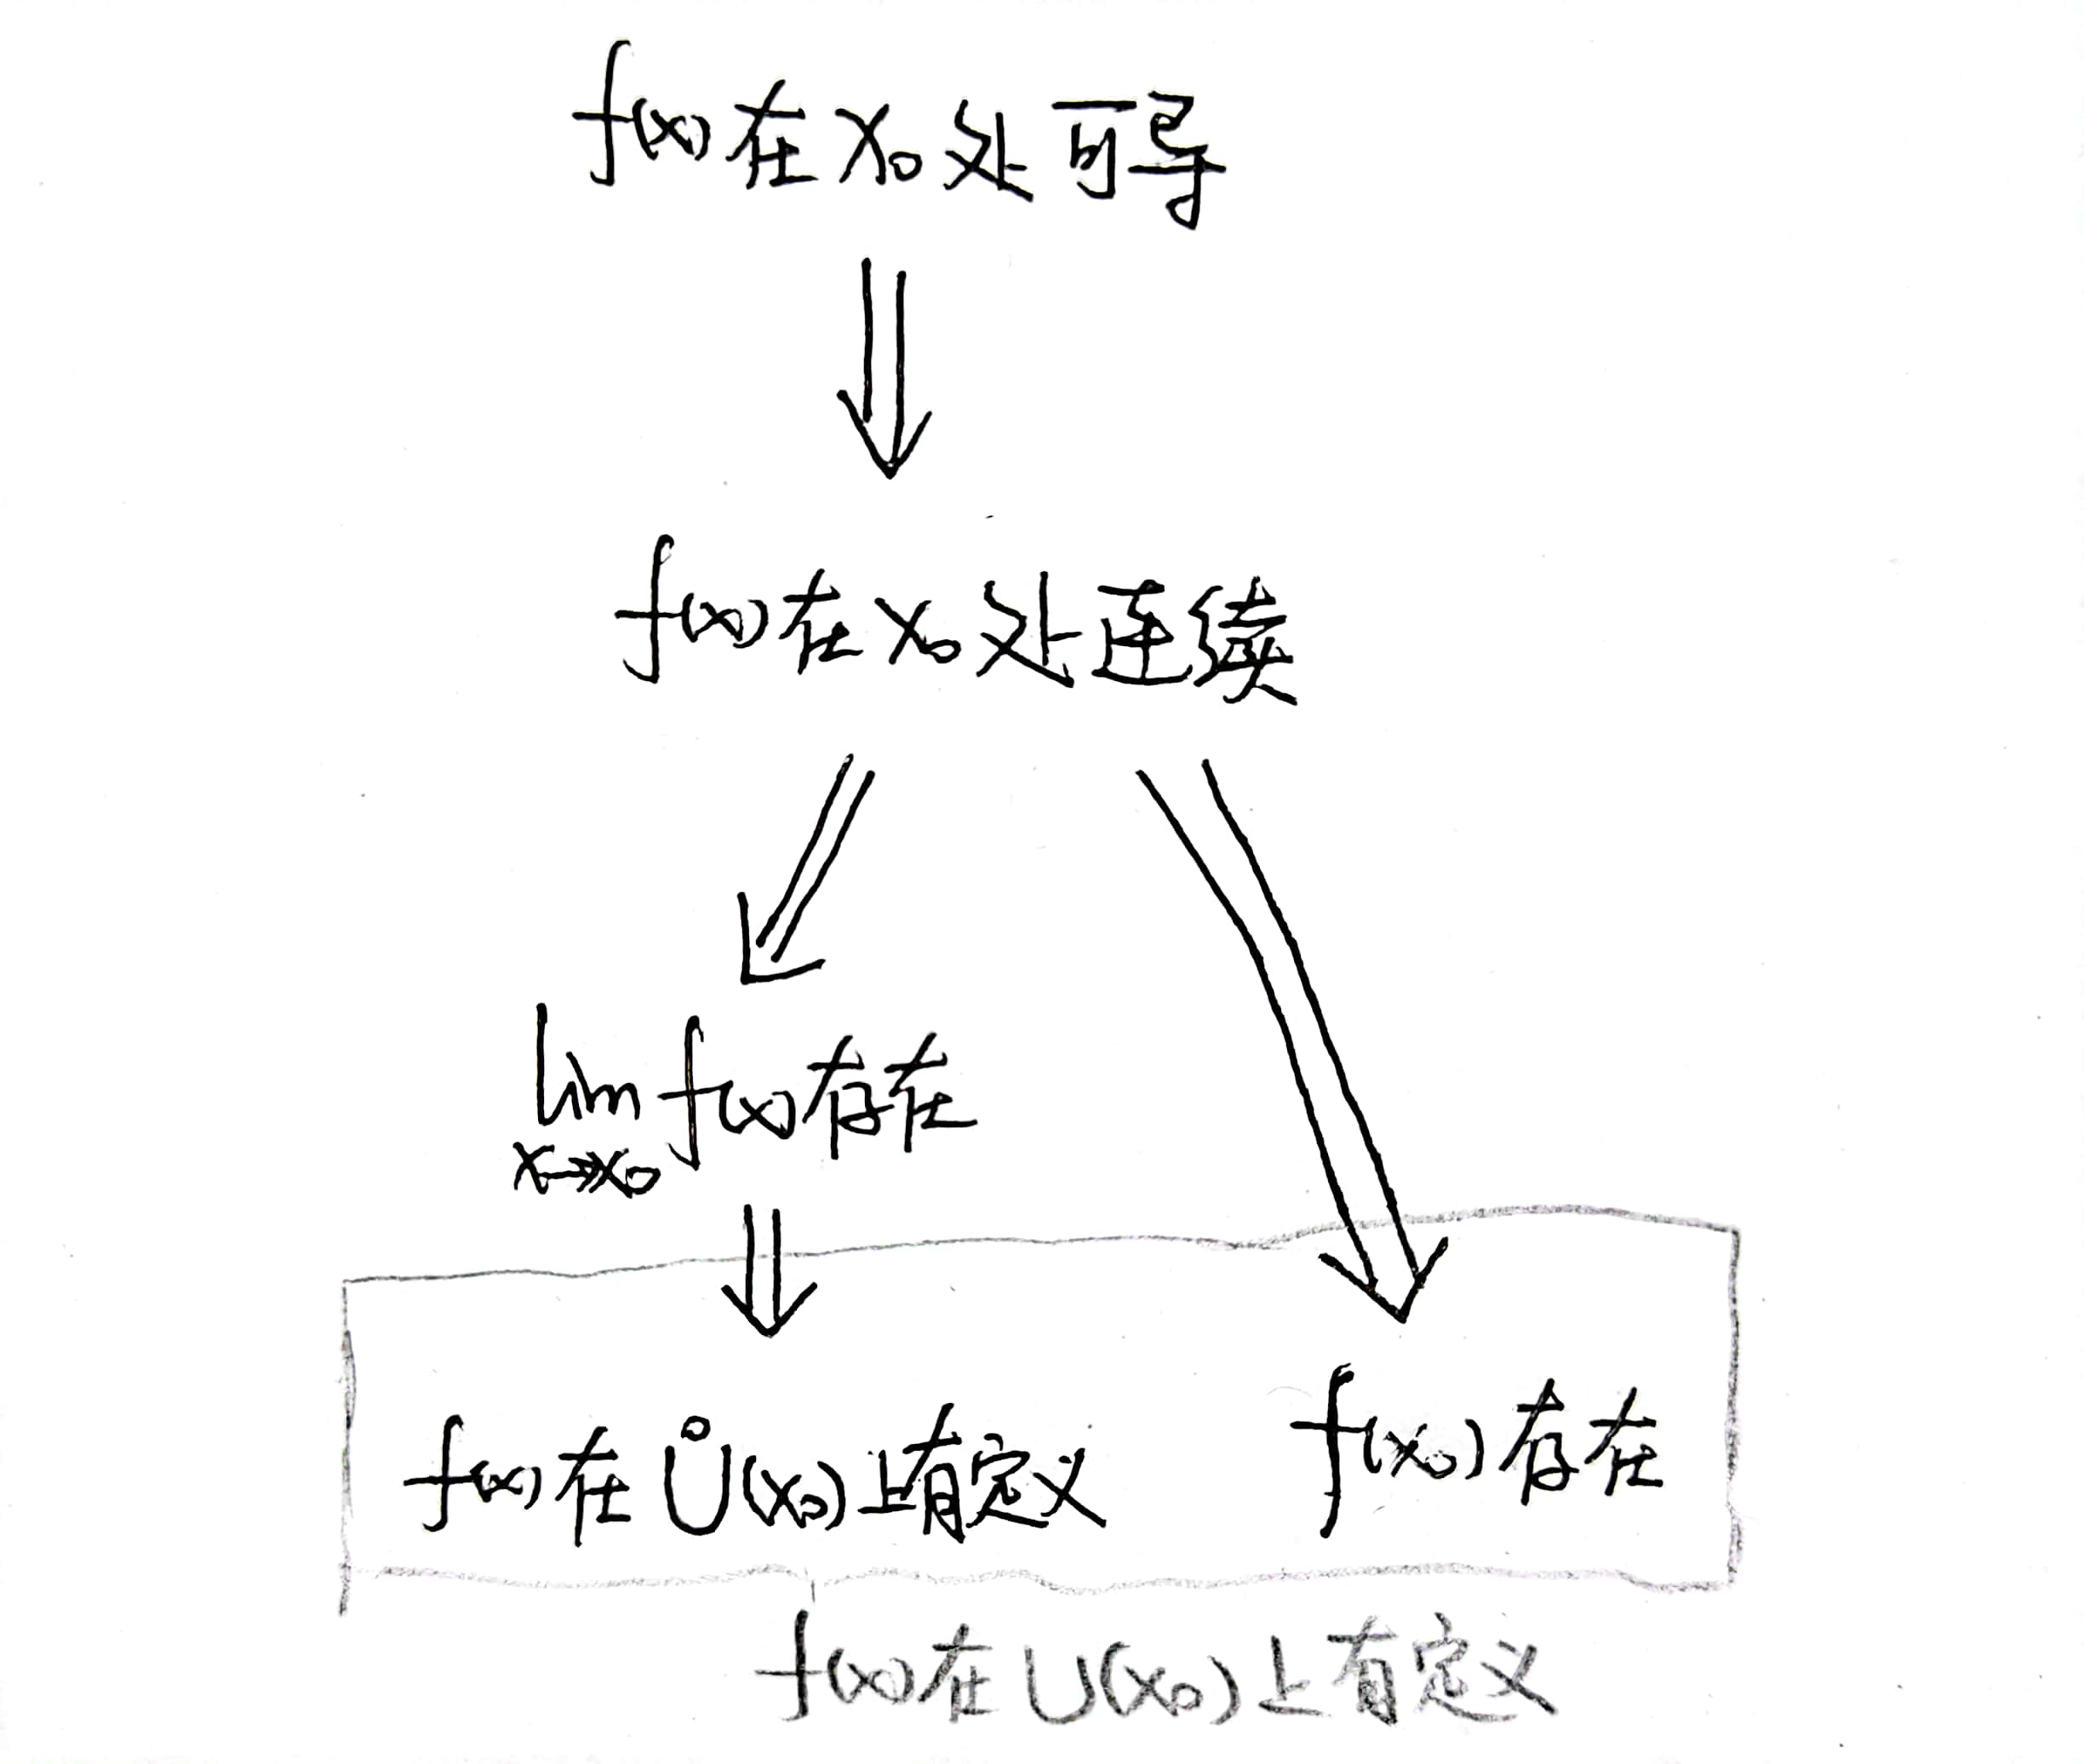 f(x)在x₀处可导
f(x)在x₀处连续
lim f(x)存在
x→x₀
f(x)在Ů(x₀)上有定义
f(x₀)存在
f(x)在U(x₀)上有定义